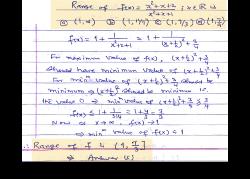 Range of f(x) = x²+x+2 / x²+x+1 ; x∈R is
(a) (1, ∞) (b) (1, 11/7) (c) (1, 7/3] (d) (1, 7/5)
f(x) = 1 + 1/(x²+x+1) = 1 + 1/((x+½)²+¾)
For maximum value of f(x), (x+½)²+¾
should have minimum value of (x+½)²+¾
For min^m value of (x+½)²+¾ should be
minimum ⇒ (x+½)² should be minimum i.e.
the value 0 ⇒ min^m value of (x+½)²+¾ = ¾
f(x) ≤ 1 + 1/(3/4) = 1+4/3 = 7/3
Now as x→∞, f(x)→1
⇒ min^m value of f(x) = 1
∴ Range of f is (1, 7/3]
⇒ Answer (c)